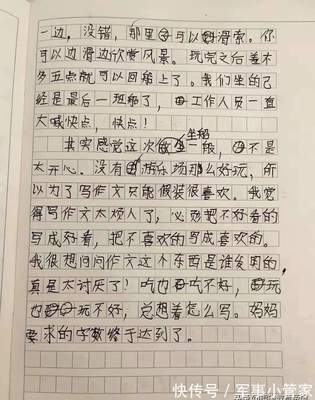 一边，没错，那里可以滑索。你
可以边滑边欣赏风景。玩完之后差不
多五点就可以回船上了。我们坐的已
经是最后一班船了，工作人员一直
大喊快点，快点！
坐船
其实感觉这次一般，不是
太开心。没有游乐场那么好玩，所
以为了写作文只能假装很喜欢。我觉
得写作文太烦人了，必须把不好看的
写成好看，把不喜欢的写成喜欢的。
我很想问问作文这个东西是谁发明的
真是太讨厌了！吃也吃不好，玩
也玩不好，总想着怎么写。妈妈
要求的字数终于达到了。
快传号／军事小管家